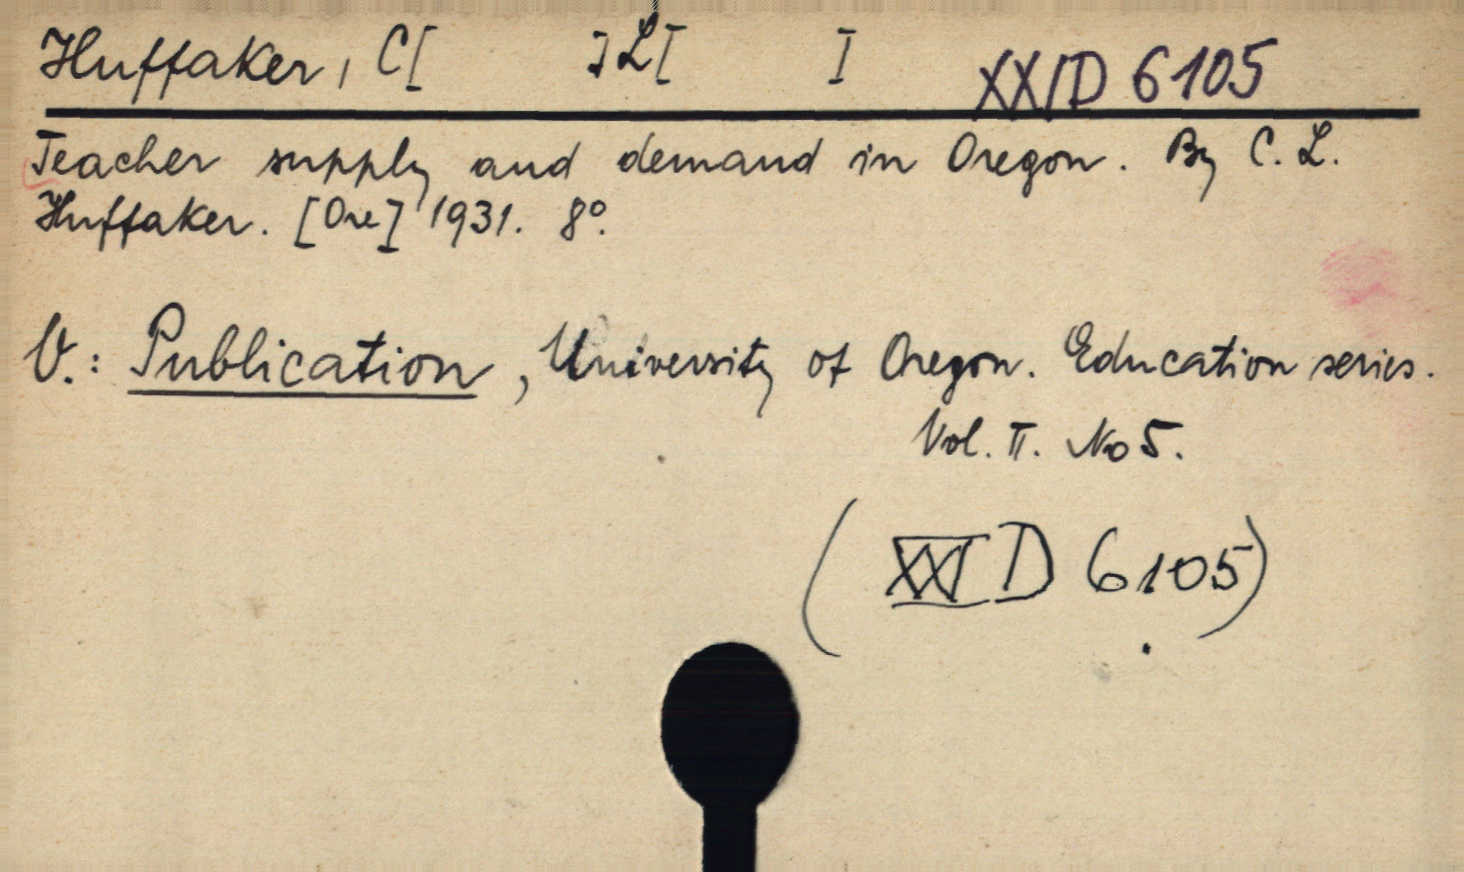 Huffaker, C[ ]L[ ] XXI D 6105
Teacher supply and demand in Oregon. By C. L.
Huffaker. [Ore] 1931. 8°.
V.: Publication, University of Oregon. Education series.
Vol. II. No 5.
(XXI D 6105)